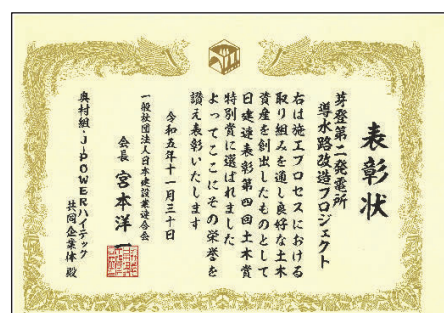 表彰状
芽登第二発電所
導水路改造プロジェクト
右は施工プロセスにおける
取り組みを通し良好な土木
資産を創出したものとして
日建連表彰第四回土木賞
特別賞に選ばれました
よってここにその栄誉を
讃え表彰いたします
令和五年十一月三十日
一般社団法人日本建設業連合会
会長 宮本洋一
奥村組・J-POWERハイテック
共同企業体殿